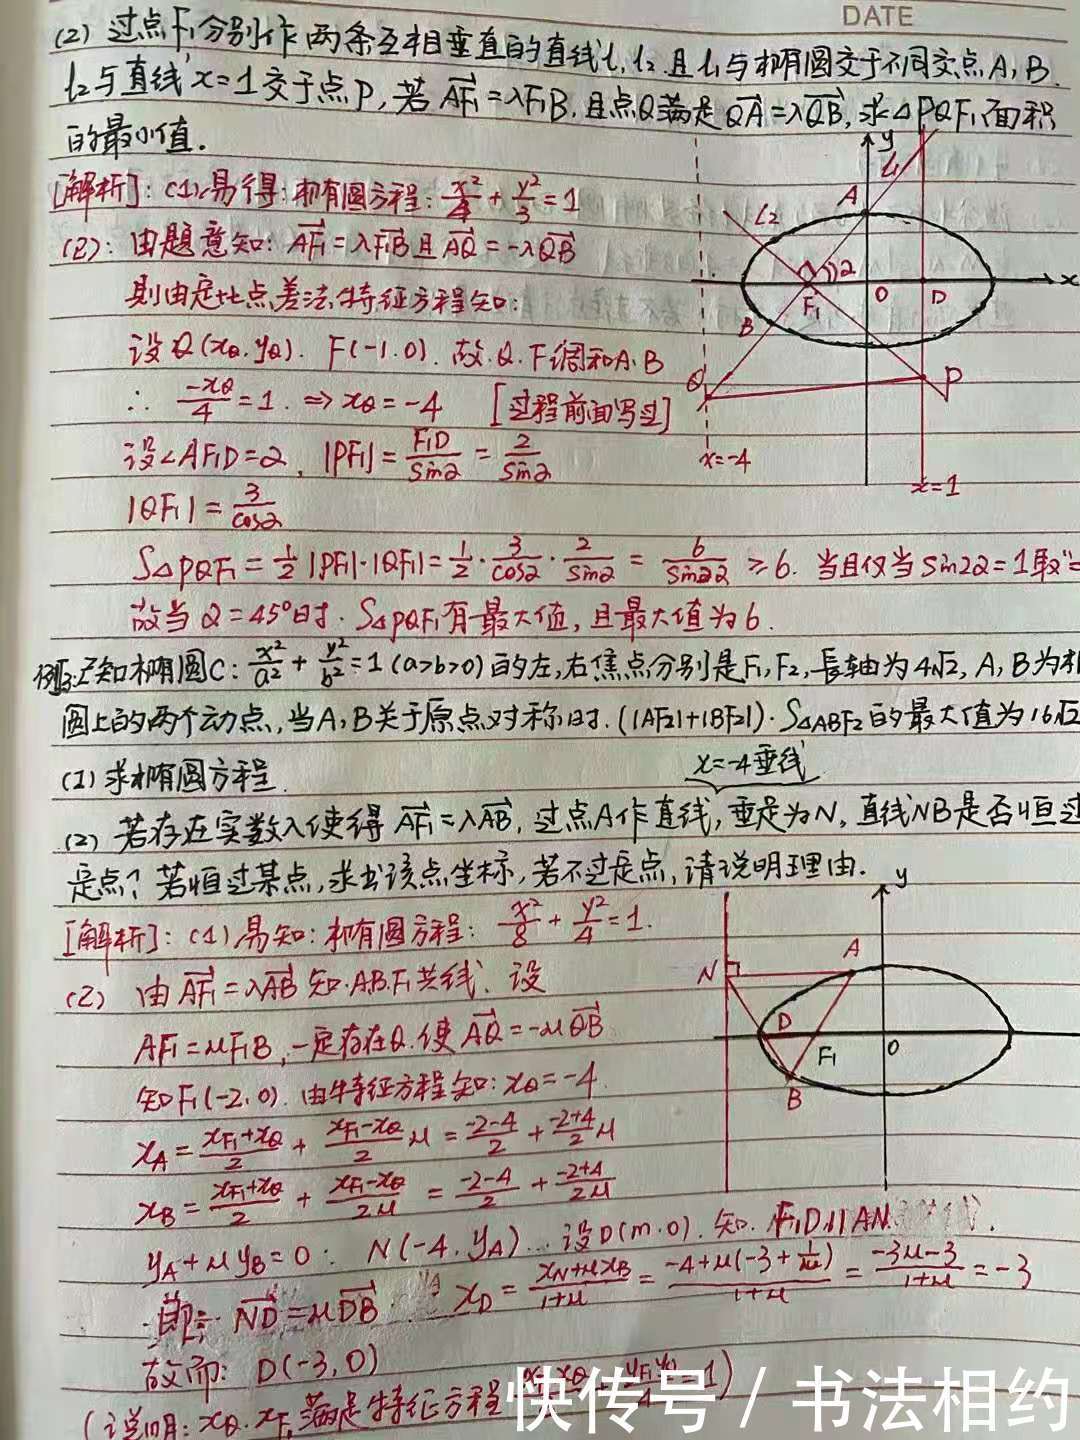 DATE
(2) 过点F₁分别作两条互相垂直的直线l₁ l₂ 且l₁与椭圆交于不同交点A, B.
l₂与直线x=1交于点P, 若 AF₁=λF₁B, 且点Q满足QA=λQB, 求△PQF₁面积
的最小值.
[解析]: (1)易得: 椭圆方程: x²/4 + y²/3 = 1
(2): 由题意知: AF₁=λF₁B 且 AQ=-λQB
则由定比点差法,特征方程知:
设Q(xQ, yQ). F(-1.0). 故.Q.F调和A.B
∴ -xQ/4 = 1. ⇒ xQ = -4 [过程前面写过]
设∠AF₁D=α, |PF₁| = F₁D/sinα = 2/sinα
|QF₁| = 3/cosα
S△PQF₁ = 1/2 |PF₁|·|QF₁| = 1/2 · 3/cosα · 2/sinα = 6/sin2α ≥ 6. 当且仅当sin2α=1取"=
故当α=45°时. S△PQF₁有最大值, 且最大值为6.
y
L₁
A
L₂
α
x
F₁
O
D
B
Q
P
x=-4
x=1
例3:已知椭圆C: x²/a² + y²/b² = 1 (a>b>0) 的左,右焦点分别是F₁, F₂, 长轴为4√2, A, B为椭
圆上的两个动点, 当A,B关于原点对称时. (|AF₂|+|BF₂|)·S△ABF₂的最大值为16√2
(1)求椭圆方程.
x=-4垂线
(2) 若存在实数λ使得 AF₁=λAB, 过点A作直线, 垂足为N, 直线NB是否恒过
定点? 若恒过某点, 求出该点坐标, 若不过定点, 请说明理由.
[解析]: (1)易知: 椭圆方程: x²/8 + y²/4 = 1.
(2) 由AF₁=λAB 知.A.B.F₁共线. 设
AF₁=μF₁B, 一定存在Q.使 AQ=-μQB
知F₁(-2.0). 由特征方程知: xQ=-4.
xA = (xF₁+xQ)/2 + (xF₁-xQ)/2 μ = (-2-4)/2 + (-2+4)/2 μ
xB = (xF₁+xQ)/2 + (xF₁-xQ)/2μ = (-2-4)/2 + (-2+4)/2μ
y
N
A
D
F₁
O
B
yA+μyB=0: N(-4, yA) 设D(m.0). 知. F₁D∥AN
即: ND=μDB xD = (xN+μxB)/(1+μ) = (-4+μ(-3+1/μ))/(1+μ) = (-3μ-3)/(1+μ) = -3
故而: D(-3, 0)
(说明: xQ.xF₁满足特征方程 =1)
快传号/书法相约